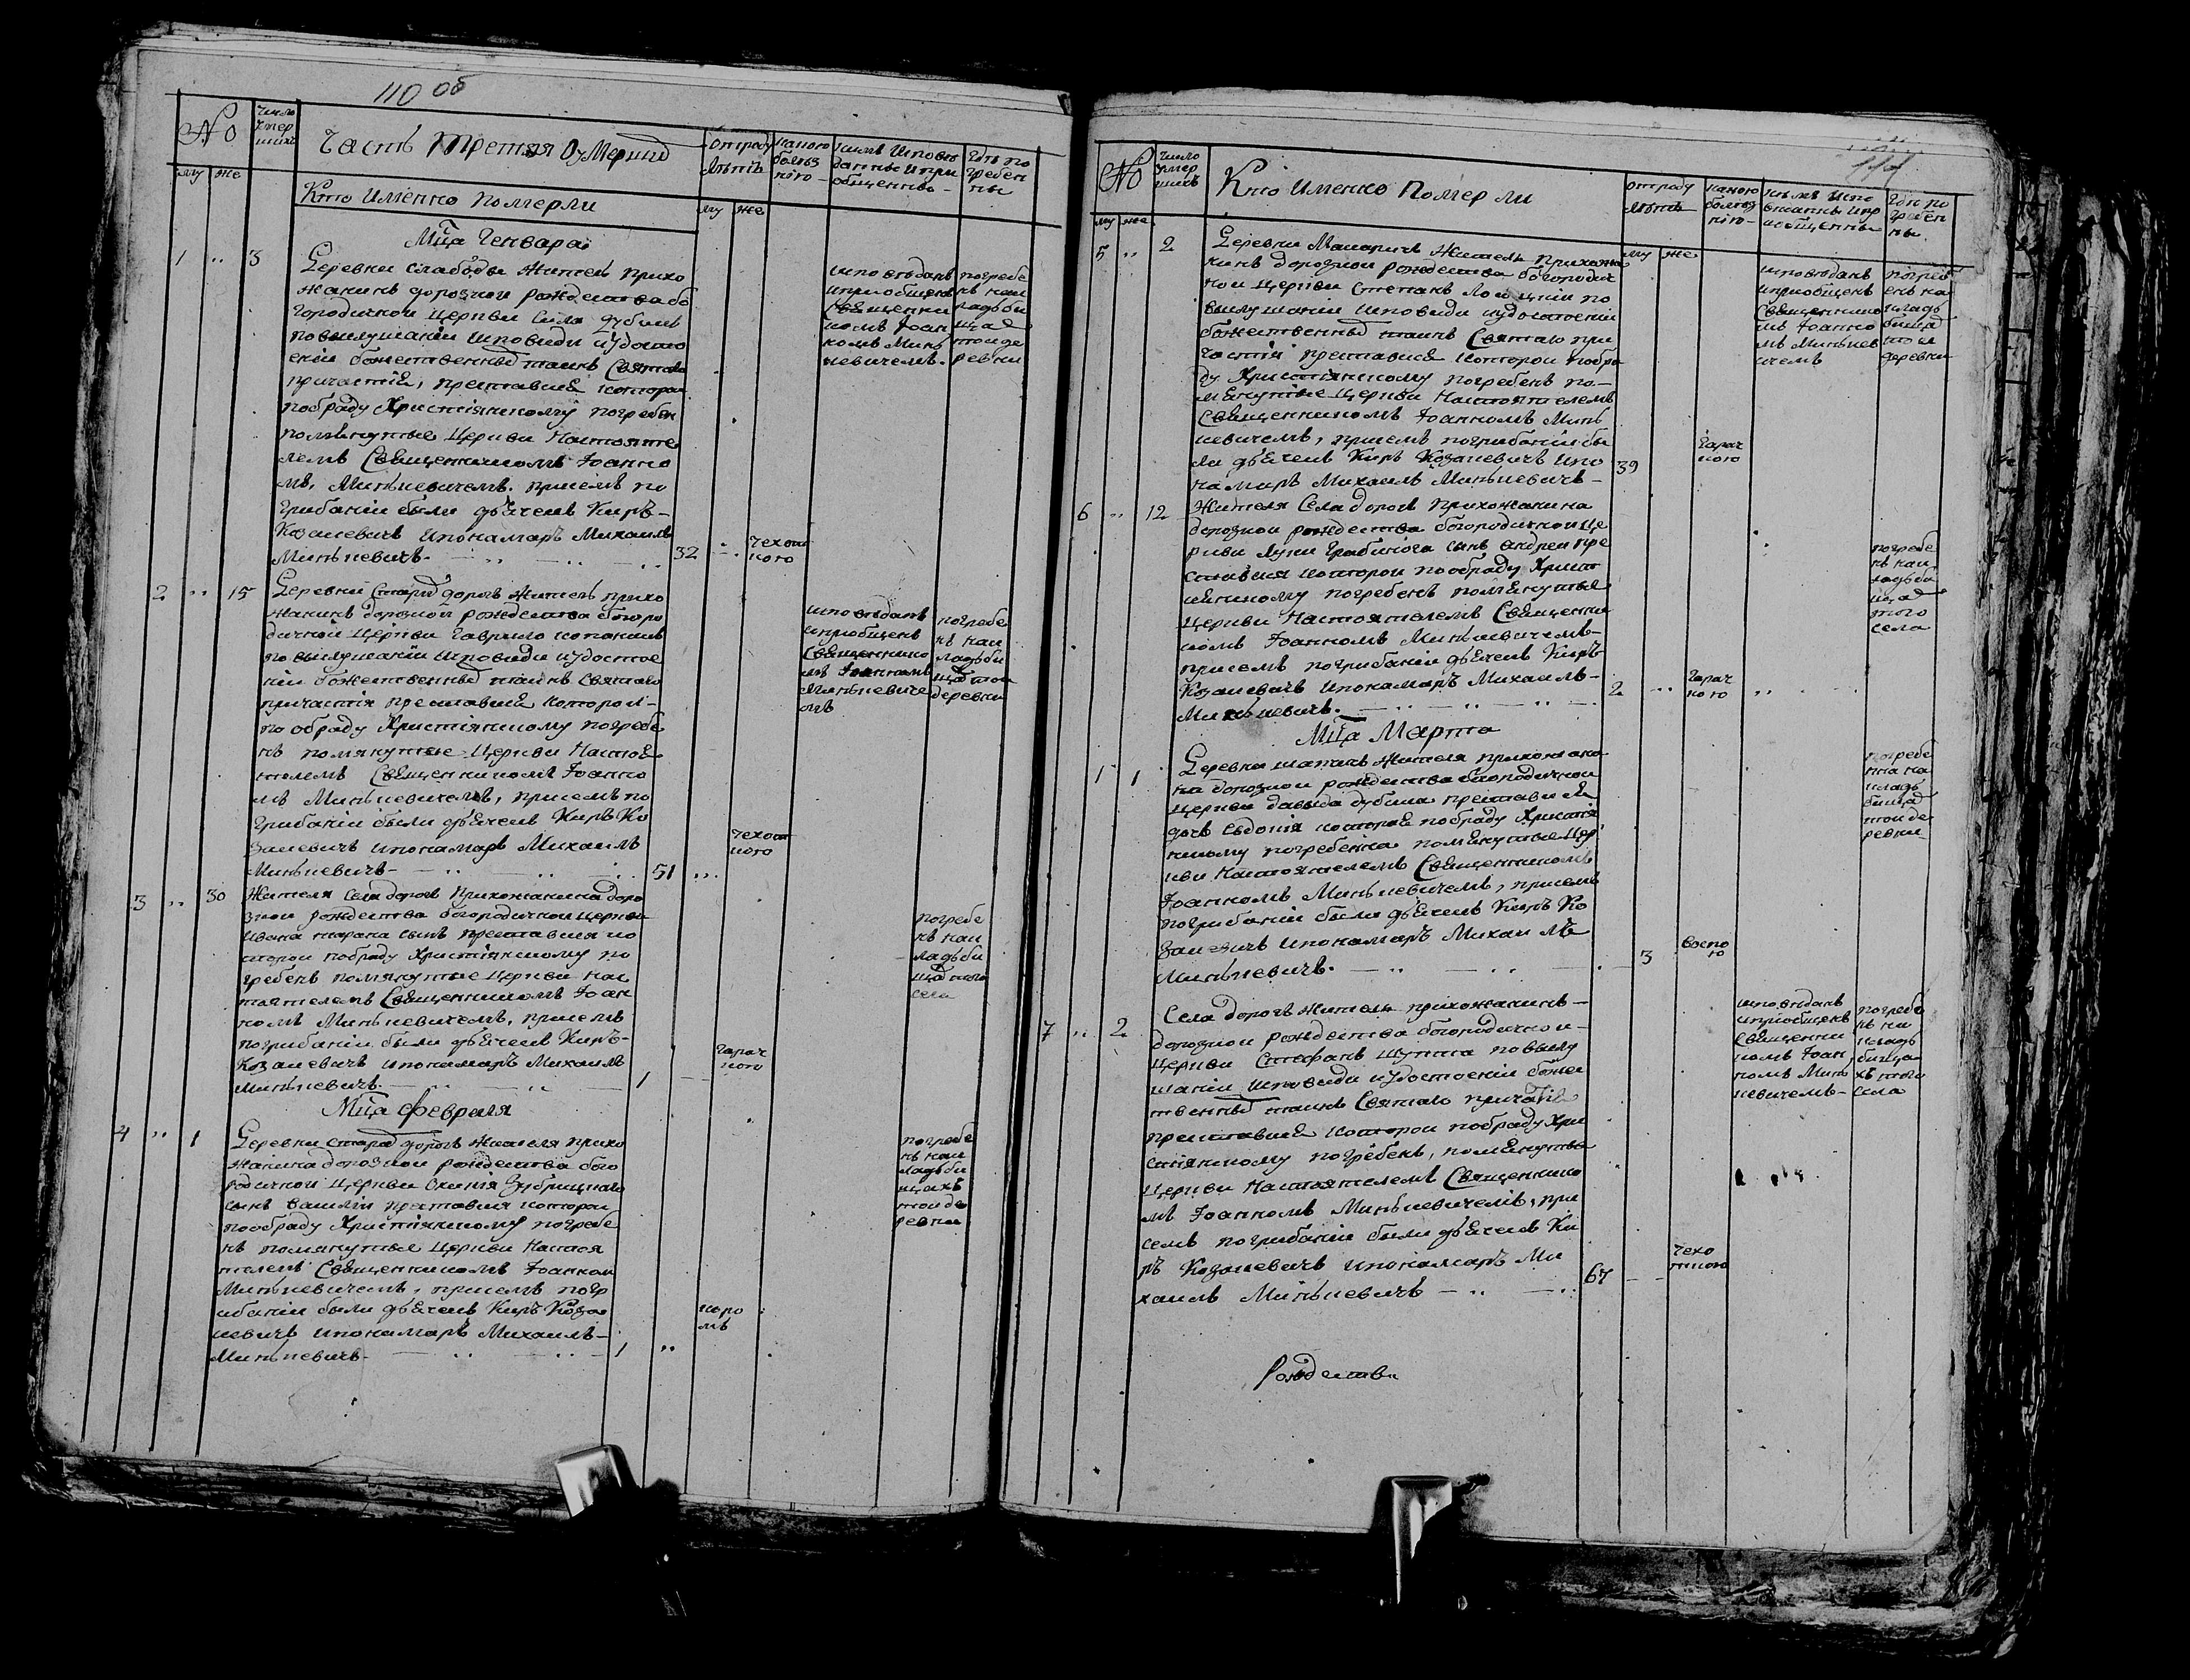 110 об
№
Число умершихъ
Часть третяя Оумершихъ
отроду летъ
какою болезнію
кимъ исповеданны и приобщенны
где погребенны
му же
Кто именно померли
му же
Мца Генвара
1 „ 3
Деревни слабоды житель прихо
жанинъ дорозкои рождества бо
городичнои церкви Сила дубикъ
повыслушаніи исповеди иудосто
еніи божественныхъ таинъ Святаго
причастія, преставися которои
пообраду Христіянскому погребен
помянутыя церкви Настояте
лемъ Священникомъ Іоанно
мъ Минкевичемъ. присемъ по
грибаніи были дьячекъ Киръ
Козакевичъ ипонамаръ Михаилъ
Минкевичъ.
32
чехоткою
исповеданъ
иприобщенъ
Священни
комъ Іоан
номъ Минь
кевичемъ.
погребе
нъ нак
ладьби
щах
тои де
ревни
2 „ 15
Деревни Старыхъ дорогъ житель прихо
жанинъ дорозкои рождества богоро
дичнои церкви Гаврило
повыслушаніи исповеди иудостое
ніи божественныхъ таинъ Святаго
причастія преставися которои
по обраду Христіянскому погребе
нъ помянутыя церкви Настоя
телемъ Священникомъ Іоанно
мъ Минькевичемъ, присемъ по
грибаніи были дьячекъ Киръ Ко
закевичъ ипонамаръ Михаилъ
Минькевичъ
51
чехоткою
исповеданъ
иприобщенъ
Священнико
мъ Іоанномъ
Минькевиче
мъ
погребе
нъ нак
ладьби
щах тои
деревни
3 „ 30
Жителя Села дорогъ прихожанина доро
зкои рождества богородичнои церкви
Ивана тарана сынъ преставися ко
торои пообраду Христіянскому по
гребенъ помянутые церкви нас
тоятелемъ Священникомъ Іоан
номъ Минькевичемъ, присемъ
погрибаніи были дьячекъ Киръ
Козакевичъ ипонамаръ Михаилъ
Минькевичъ.
1
гарачкою
погребе
нъ нак
ладьби
щах того
села
Мца февраля
4 „ 1
Деревни старыхъ дорогъ жителя прихо
жанина дорозкои рождества бого
родичнои церкви Зубрицкаго
сынъ Василіи преставися которои
пообраду Христіянскому погребе
нъ помянутыя церкви Настоя
телемъ Священникомъ Іоанном
Минькевичемъ, присемъ погр
ибаніи были дьячекъ Киръ Коза
кевичъ ипонамаръ Михаилъ
Минькевичъ
1
погребе
нъ нак
ладьби
щахъ
тои де
ревни
№
Число умершихъ
Кто именко Померли
отроду летъ
какою болезнію
кимъ исповеданны и приобщенны
где погребенны
му же
му же
5 „ 2
Деревни Макаричъ житель прихожа
нинъ дорозкои рождества богородич
нои церкви Степанъ по
выслушаніи исповеди иудостоеніи
божественныхъ таинъ Святаго при
частія преставися которои пообра
ду Христіянскому погребенъ по
мянутые церкви Настоятелемъ
Священникомъ Іоанномъ Минь
кевичемъ, присемъ погрибаніи бы
ли дьячекъ Киръ Козакевичъ ипо
намаръ Михаилъ Минькевичъ
39
гарачкою
исповеданъ
иприобщенъ
Священнико
мъ Іоанно
мъ Минькев
ичемъ
погреб
енъ на
кладь
бищах
тои
деревни
6 „ 12
Жителя Села дорогъ прихожанина
дорозкои рождества богородичнои це
ркви Луки сынъ андреи пре
ставися которои пообраду Христ
іянскому погребенъ помянутыя
церкви Настоятелемъ Священни
комъ Іоанномъ Минькевичемъ
присемъ погрибаніи дьячекъ Киръ
Козакевичъ ипонамаръ Михаилъ
Минькевичъ.
2
гарачкою
погребе
нъ нак
ладьби
щах
того
села
Мца Марта
1 1
Деревни жителя прихожани
на дорозкои рождества богородичнои
церкви давыда дубика преставися
дочъ Евдокія которая пообраду Христія
нскому погребенна помянутыя цер
кви Настоятелемъ Священникомъ
Іоанномъ Минькевичемъ, присемъ
погрибаніи были дьячекъ Киръ Ко
закевичъ ипонамаръ Михаилъ
Минькевичъ.
3
воспою
погребе
нна на
кладь
бищах
тои де
ревни
7 „ 2
Села дорогъ житель прихожанинъ
дорозкои рождества богородичнои
церкви Стефанъ повыслу
шаніи исповеди иудостоеніи боже
ственныхъ таинъ Святаго причастія
преставися которои пообраду Хри
стіянскому погребенъ, помянутыя
церкви Настоятелемъ Священнико
мъ Іоанномъ Минькевичемъ, при
семъ погрибаніи были дьячекъ Ки
ръ Козакевичъ ипонамаръ Ми
хаилъ Минькевичъ
67
чехоткою
исповеданъ
иприобщенъ
Священни
комъ Іоан
номъ Минь
кевичемъ
погребе
нъ на
кладь
бища
хъ того
села
Рождества